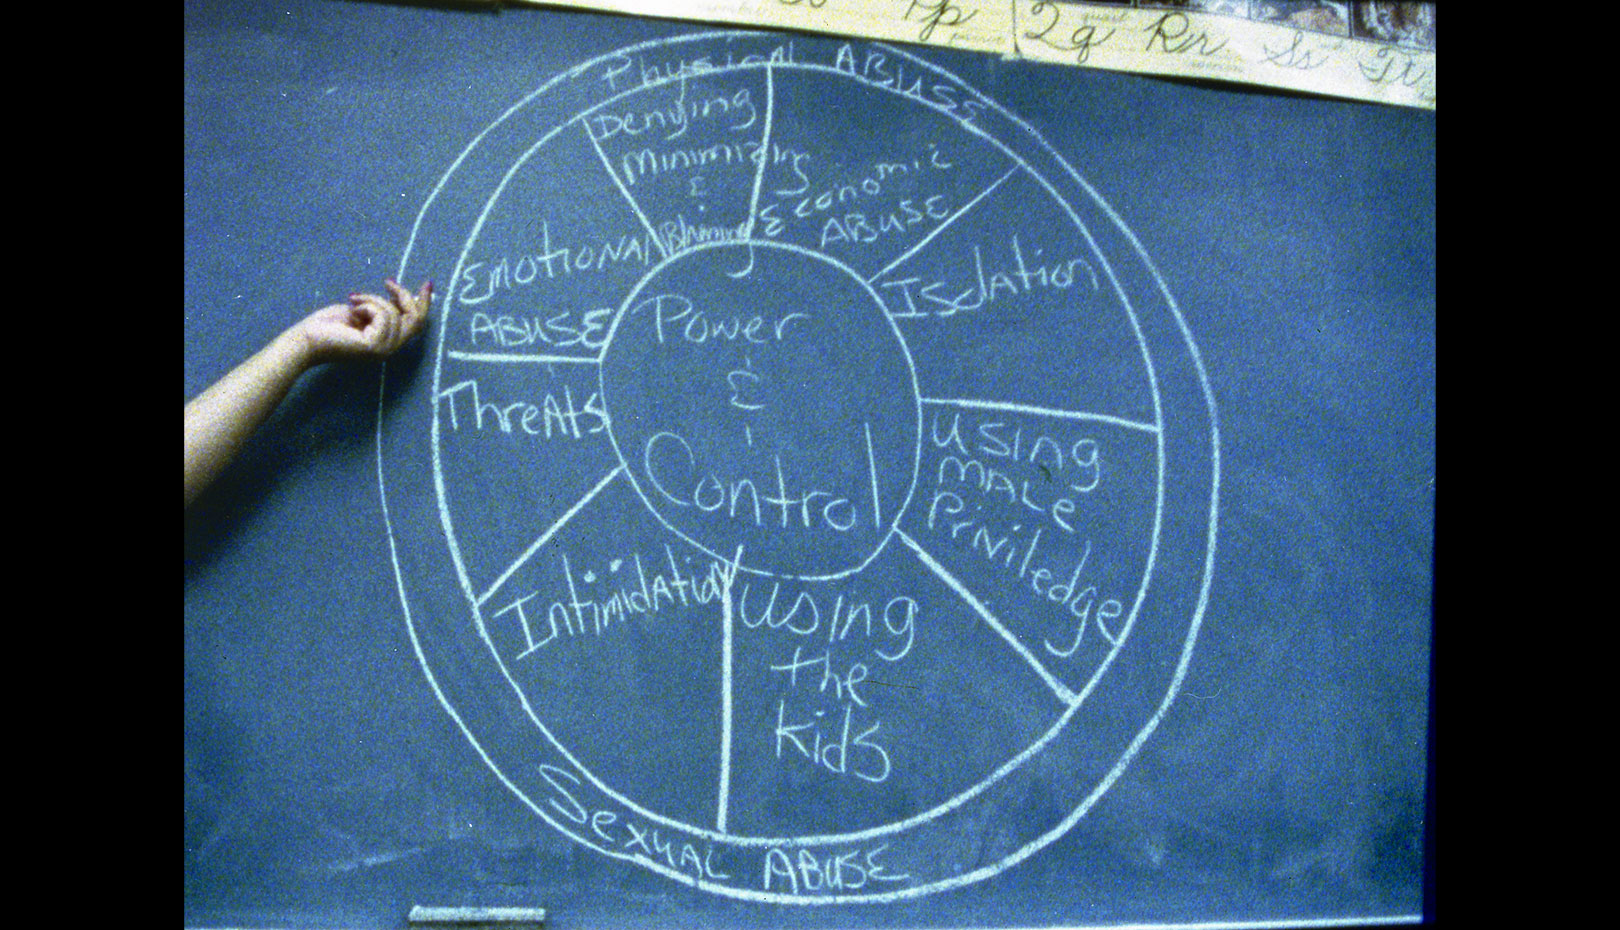 Pp
Qq Rr Ss Tt
Physical ABUSE
Denying
Minimizing
&
Blaming
Economic
ABUSE
Isolation
Using
MALE
Priviledge
Using
the
Kids
Intimidation
Threats
EMOTIONAL
ABUSE
Power
&
Control
Sexual ABUSE